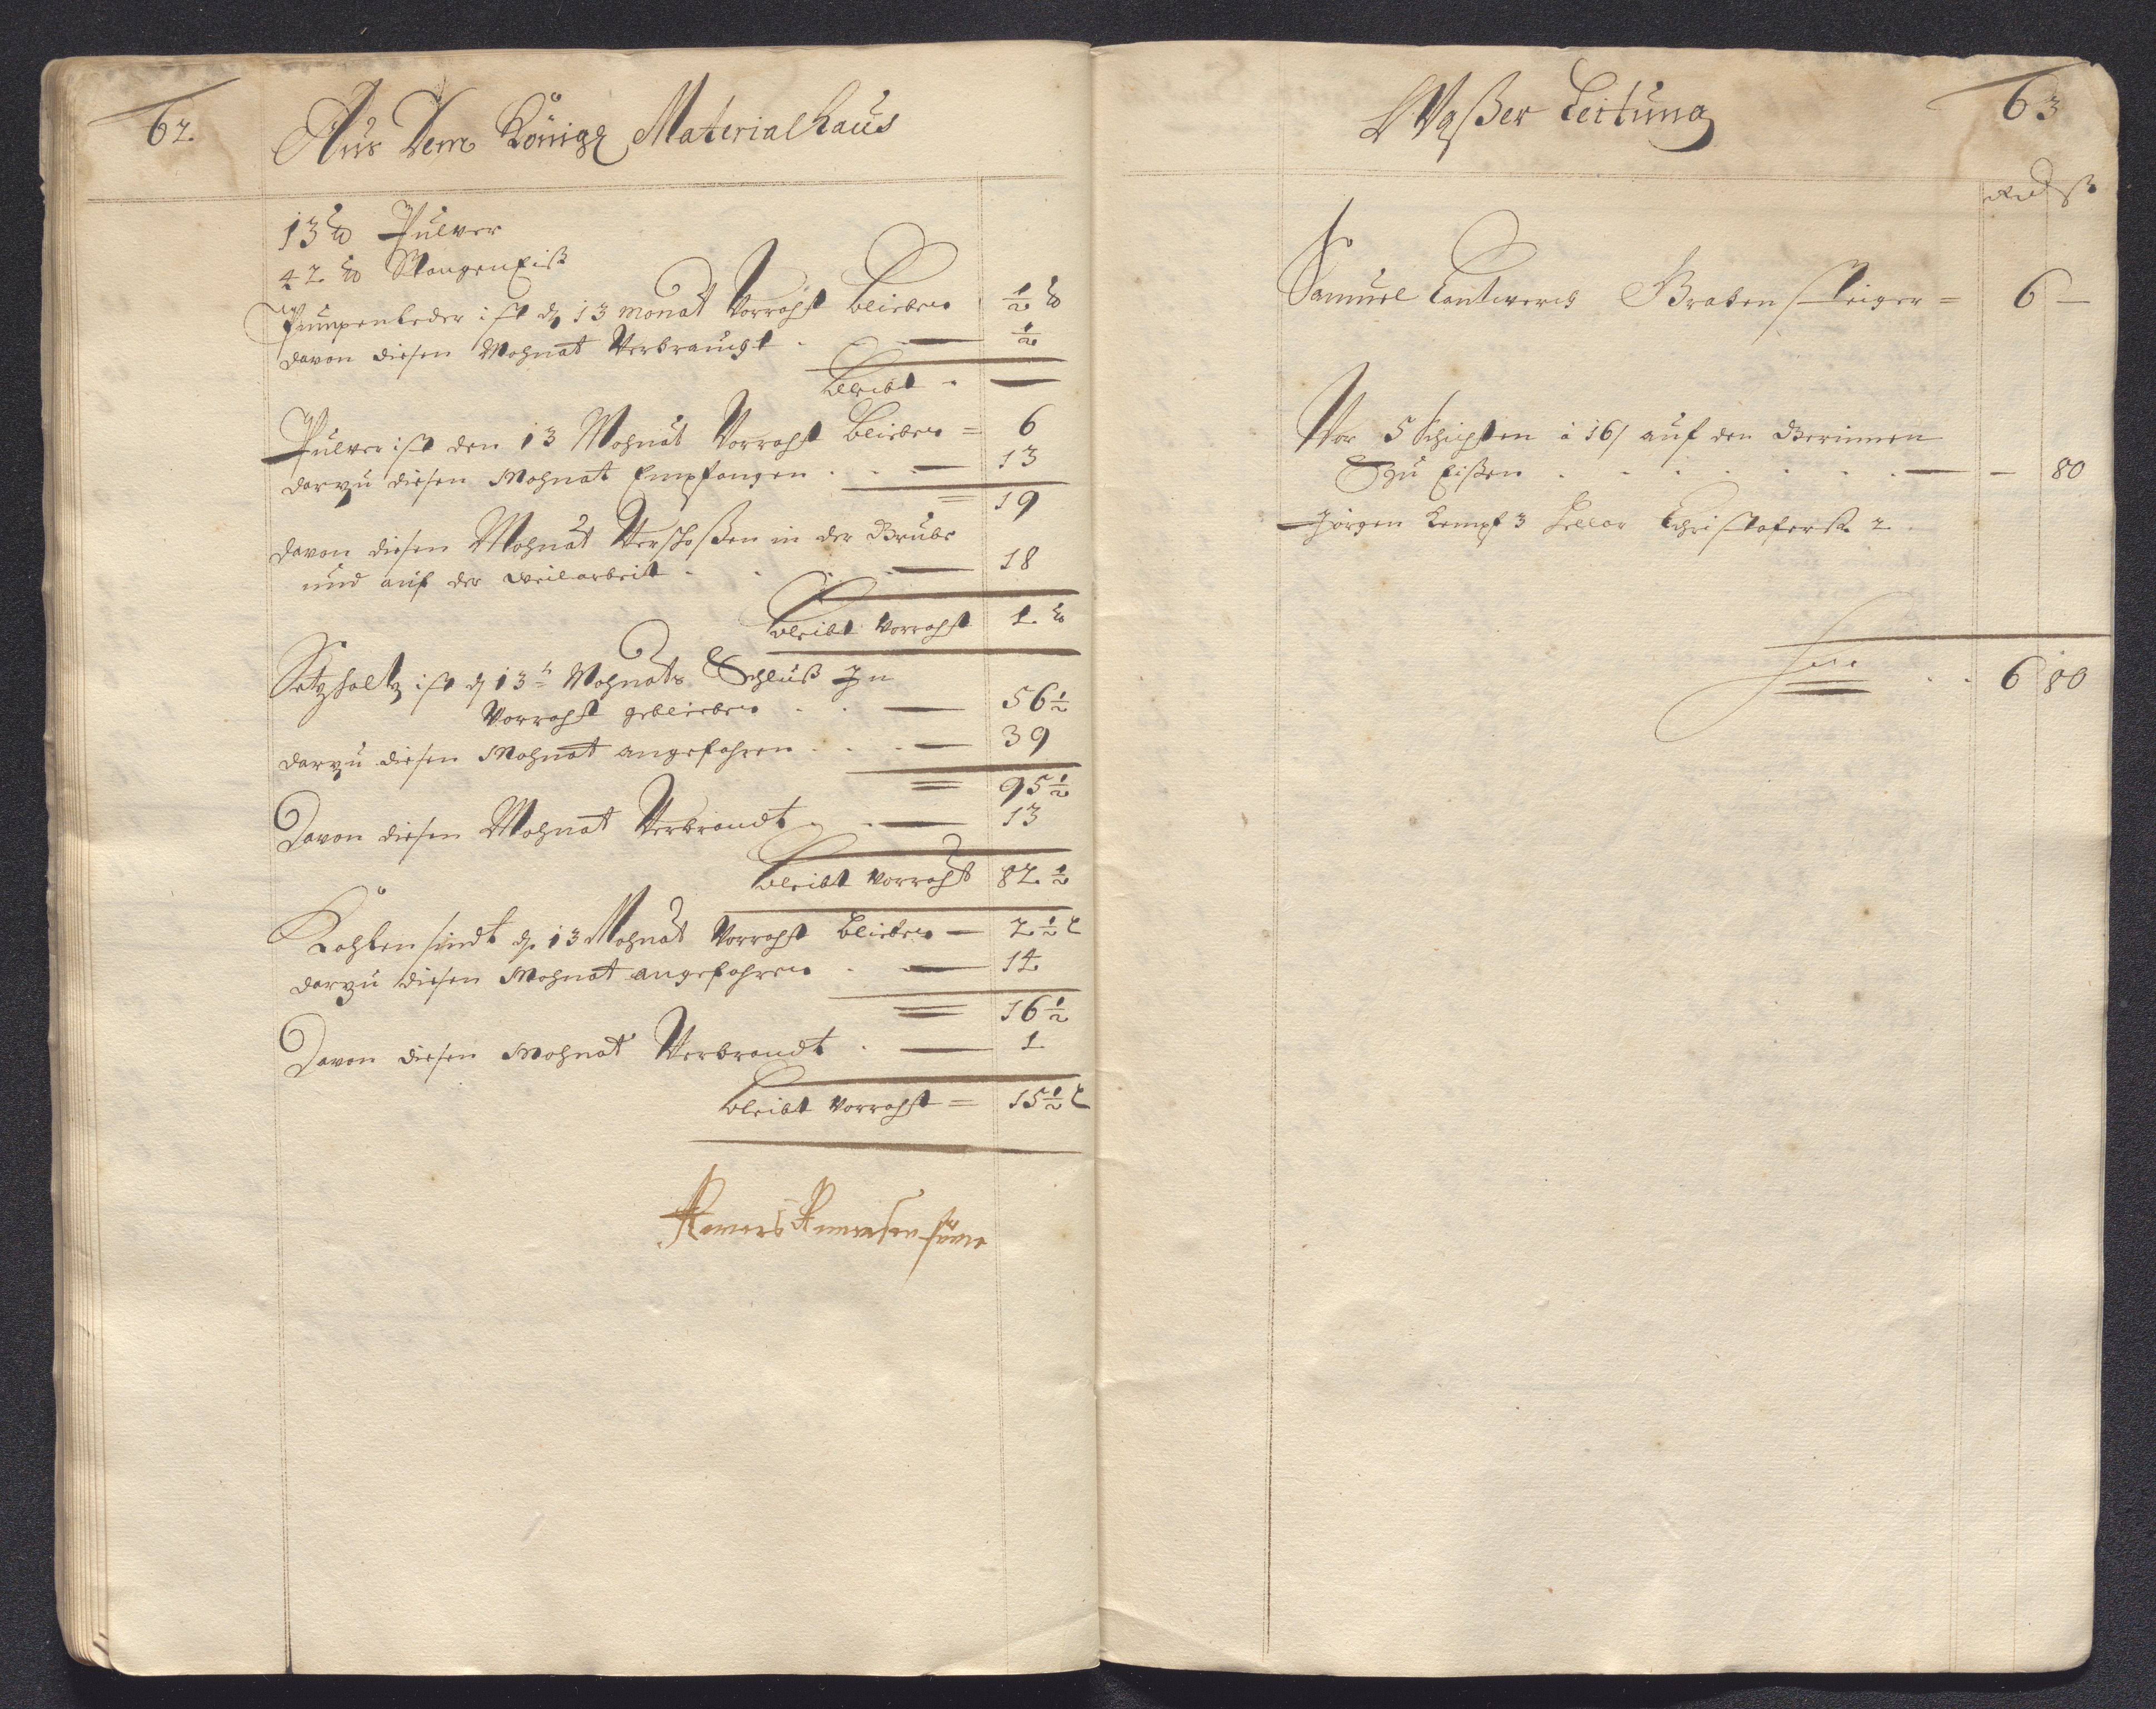 62.
Aus Dem Königl Materialhaus
13 ℔ Pulver
42 ℔ StangenEiß
Pumpenleder ist d 13 monat Vorraht blieben ½ ℔
davon diesen Mohnat Verbraucht . — ½
bleibt . —
Pulver ist den 13 Mohnat Vorraht blieben = 6
darzu diesen Mohnat Empfangen . . . — 13
= 19
davon diesen Mohnat Verschoßen in der Grube
und auf der Weilarbeit . . . — 18
bleibt Vorraht 1 ℔
Setzholtz ist d 13 Mohnats Schluß In
Vorraht geblieben . . — 56½
darzu diesen Mohnat angefahren . . . — 39
= 95½
Davon diesen Mohnat Verbrandt . . — 13
bleibt Vorraht 82½
Kohlen sindt d 13 Mohnat Vorraht blieben — 2½ L
darzu diesen Mohnat angefahren . — 14
= 16½
Davon diesen Mohnat Verbrandt . — 1
bleibt Vorraht = 15½ L
Waßer Leitung
63
Rd ß
Samuel Lantwerck Graben steiger = 6 —
Vor 5 Schichten à 16/ auf den Gerinnen
Zu Eißen . . . . . . . — — 80
Jörgen Kempf 3 Christofer 2
Sue . . 6 80